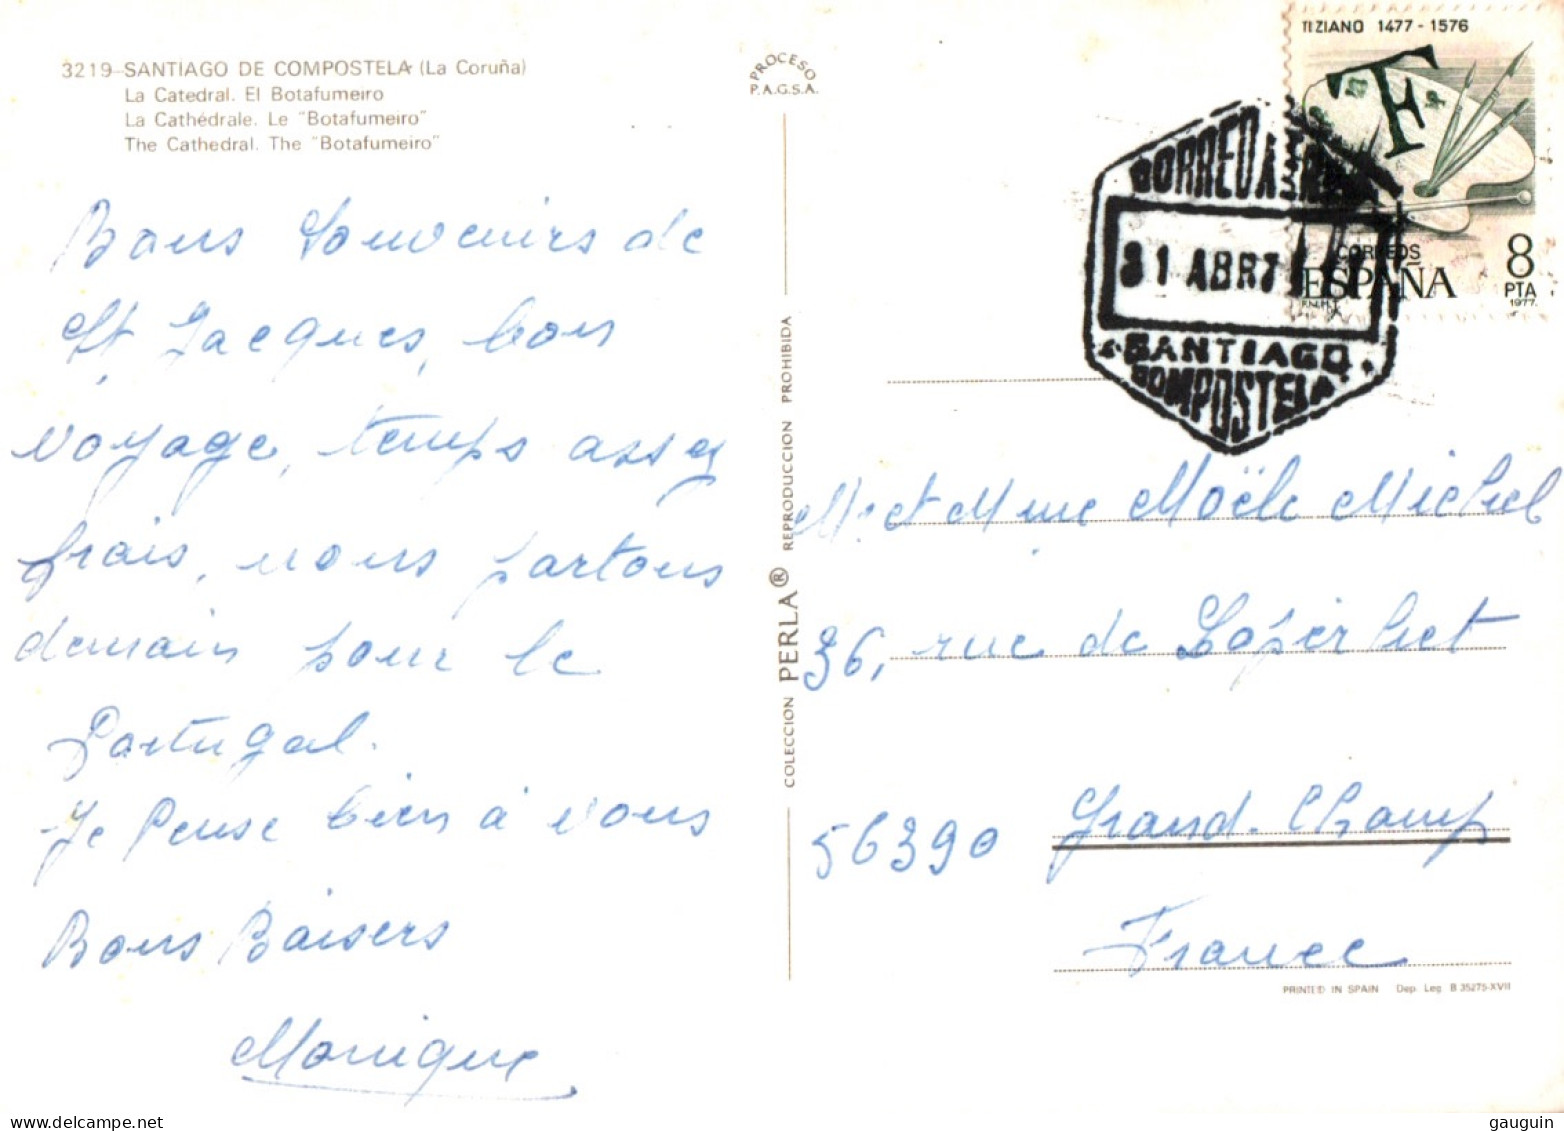 3219-SANTIAGO DE COMPOSTELA (La Coruña)
La Catedral. El Botafumeiro
La Cathédrale. Le "Botafumeiro"
The Cathedral. The "Botafumeiro"
Bons Souvenirs de
St Jacques, bon
voyage, temps assez
frais, nous partons
demain pour le
Portugal.
Je Pense bien à vous
Bons Baisers
Monique
PROCESO
P.A.G.S.A.
COLECCION PERLA® REPRODUCCION PROHIBIDA
TIZIANO 1477-1576
CORREOS
ESPAÑA
8
PTA
F.N.M.T.
1977.
CORREO
31 ABR 7
SANTIAGO
COMPOSTELA
Mr et Mme Moëlo Michel
36, rue de
56390 Grand-Champ
France
PRINTED IN SPAIN Dep. Leg. B 35275-XVII
www.delcampe.net
gauguin